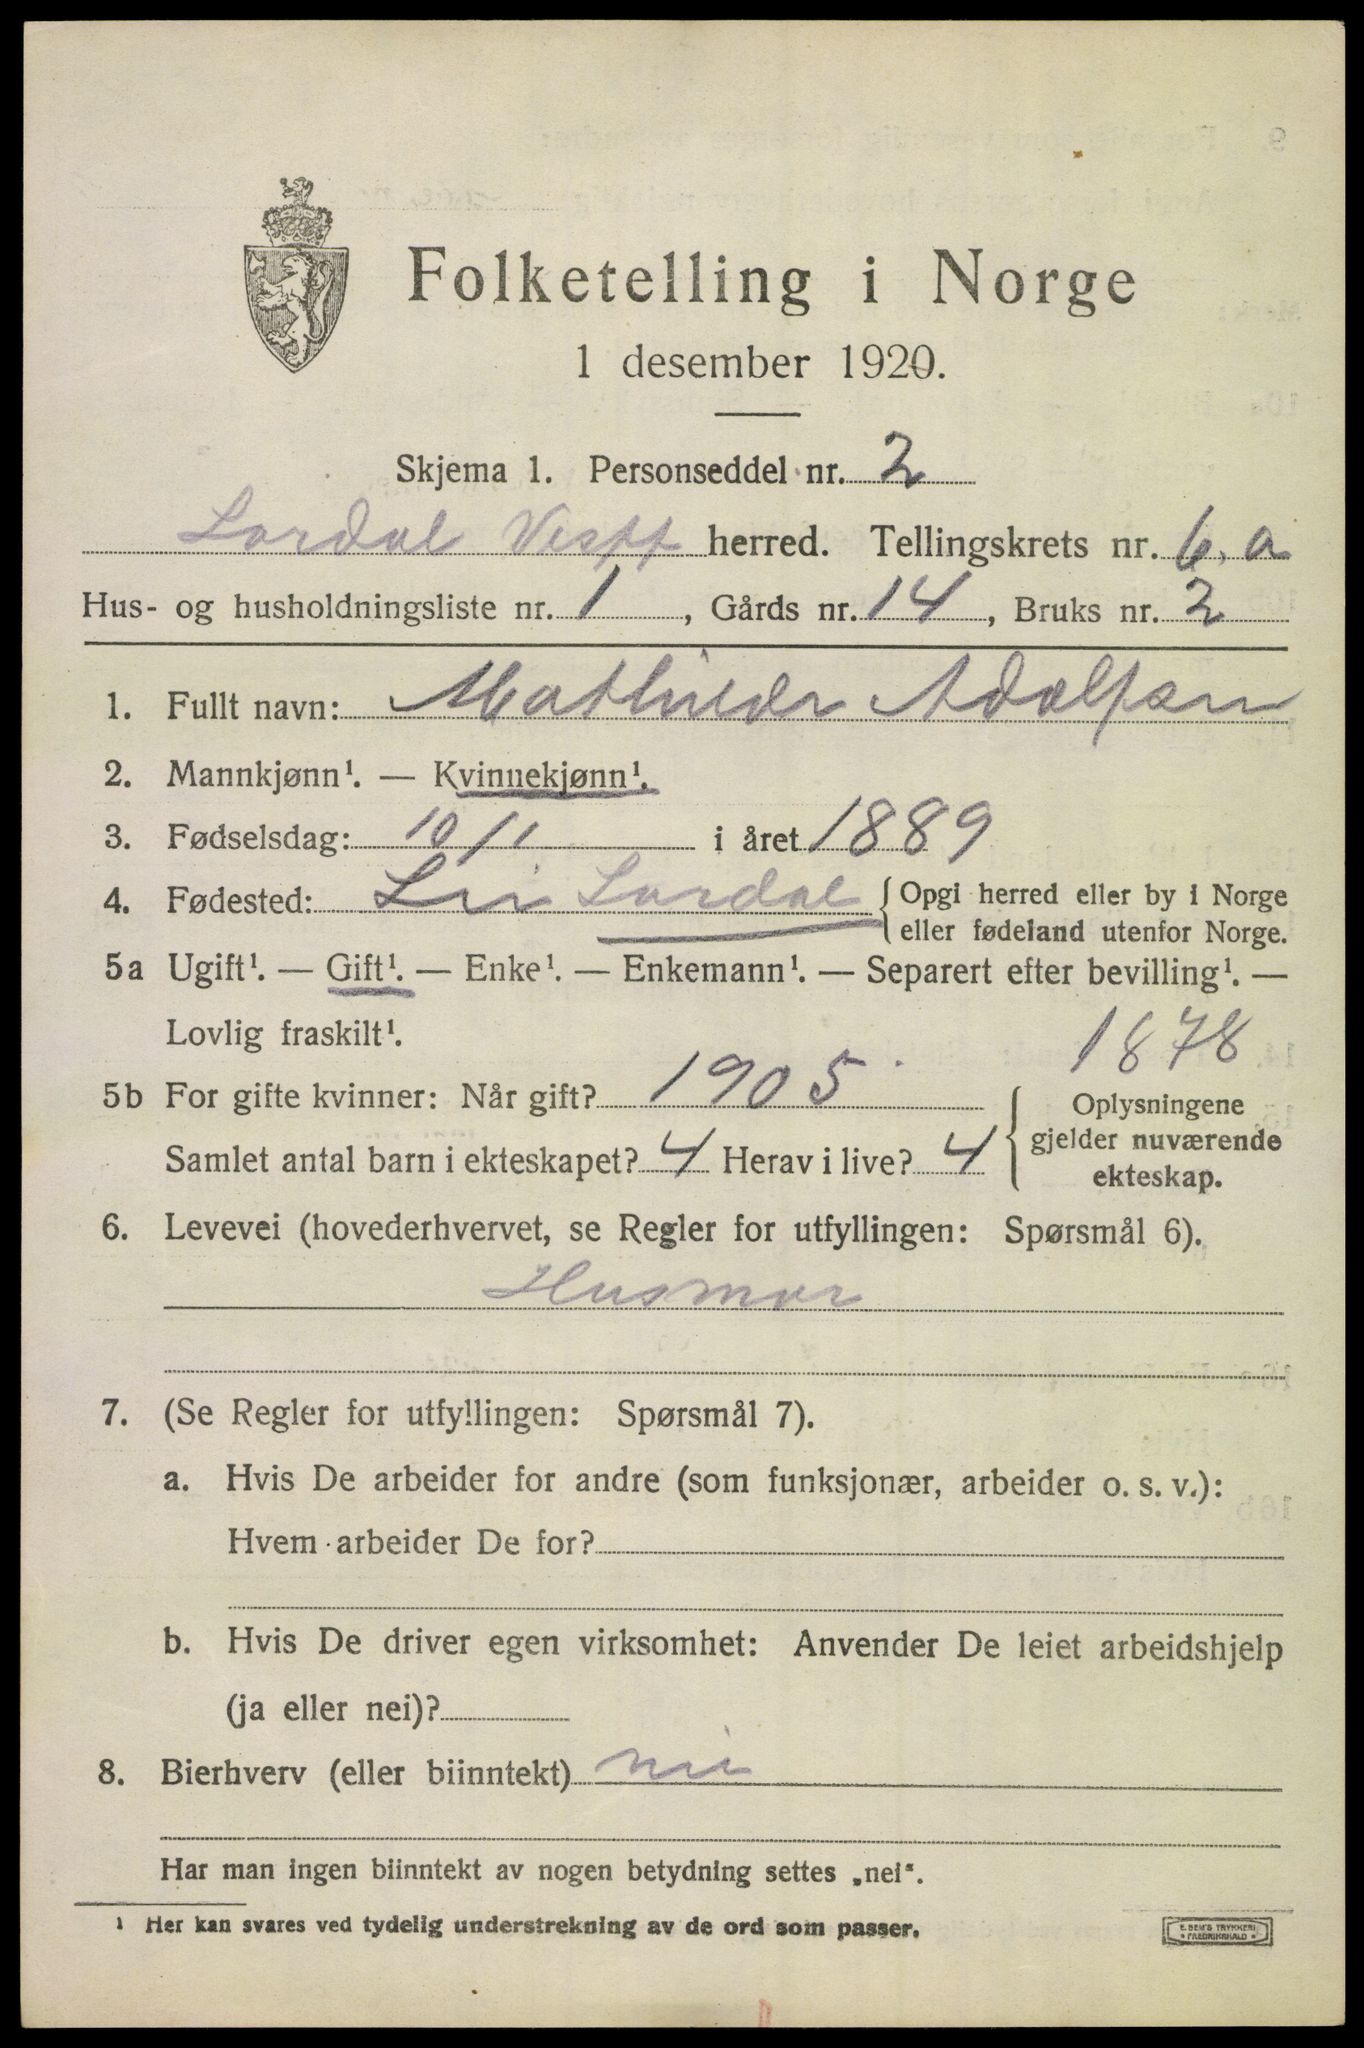 Folketelling i Norge
1 desember 1920.
Skjema 1. Personseddel nr. 2
Lardal Vestf herred. Tellingskrets nr. 6. a
Hus- og husholdningsliste nr. 1, Gårds nr. 14, Bruks nr. 2
1. Fullt navn: Mathilde Adolfsen
2. Mannkjønn¹. — Kvinnekjønn¹.
3. Fødselsdag: 10/1 i året 1889
4. Fødested: Lardal { Opgi herred eller by i Norge
eller fødeland utenfor Norge.
5a Ugift¹. — Gift¹. — Enke¹. — Enkemann¹. — Separert efter bevilling¹. —
Lovlig fraskilt¹. 1878
5b For gifte kvinner: Når gift? 1905 { Oplysningene
gjelder nuværende
Samlet antal barn i ekteskapet? 4 Herav i live? 4
ekteskap.
6. Levevei (hovederhvervet, se Regler for utfyllingen: Spørsmål 6).
Husmor
7. (Se Regler for utfyllingen: Spørsmål 7).
a. Hvis De arbeider for andre (som funksjonær, arbeider o. s. v.):
Hvem arbeider De for?
b. Hvis De driver egen virksomhet: Anvender De leiet arbeidshjelp
(ja eller nei)?
8. Bierhverv (eller biinntekt) nei
Har man ingen biinntekt av nogen betydning settes „nei“.
¹ Her kan svares ved tydelig understrekning av de ord som passer.
E. SEM'S TRYKKERI
FREDRIKSHALD